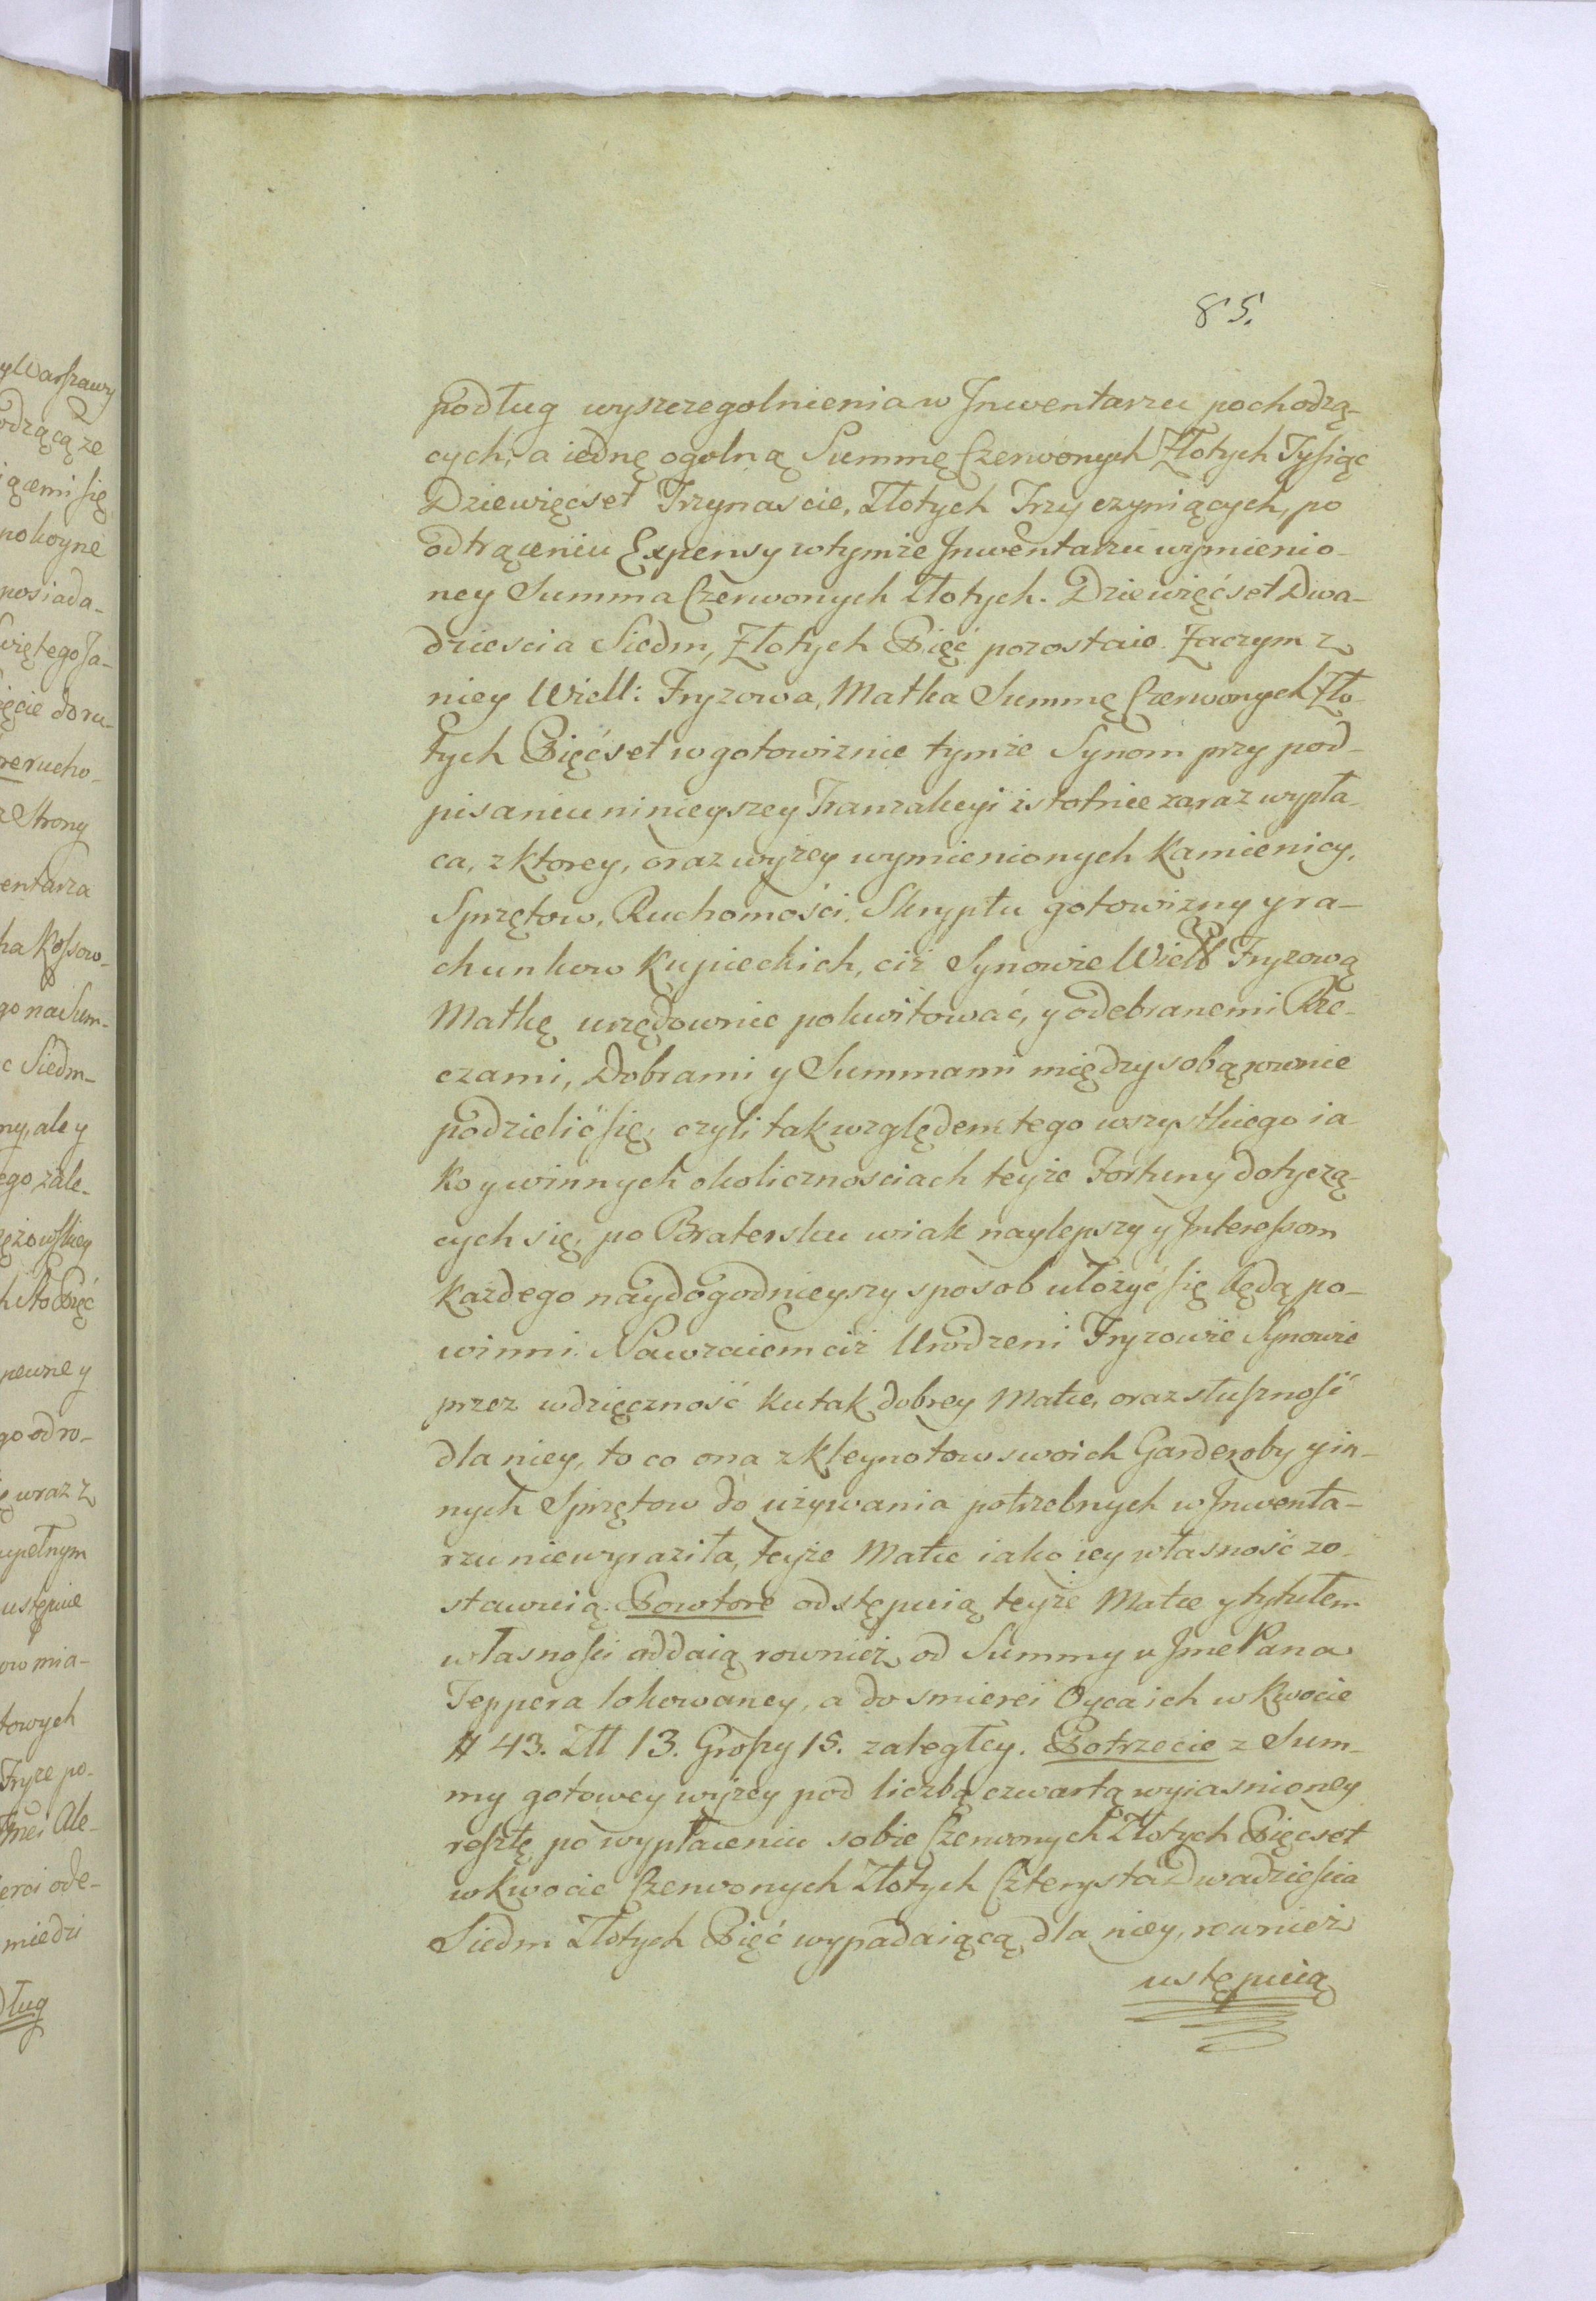 85.
podług wyszczegolnienia w Inwentarzu pochodzą-
cych, a iednę ogolną Summę Czerwonych Złotych Tysiąc
Dziewięcset Trzynascie, Złotych Trzy czyniących, po
odtrąceniu Expensy w tymże Inwentarzu wymienio-
ney Summa Czerwonych Złotych. Dziewięćset Dwa-
dziescia Siedm, Złotych Pięć pozostaie. Zaczym z
niey Wiell: Fryzowa, Matka Summę Czerwonych Zło-
tych Pięćset w gotowiznie tymże Synom przy pod-
pisaniu ninieyszey Tranzakcyi istotnie zaraz wypła-
ca, z ktorey, oraz wyżey wymienionych Kamienicy,
Sprzętow, Ruchomości, Skryptu gotowizny y ra-
chunkow Kupieckich, ciż Synowie Wiell Fryzową
Matkę urzędownie pokwitować, y odebranemi Rze-
czami, Dobrami y Summami między sobą rownie
podzielić się, czyli tak względem tego wszystkiego ia
ko y w innych okolicznosciach teyże Fortuny dotyczą-
cych się, po Bratersku w iak naylepszy y Interessom
każdego naydogodnieyszy sposob ułożyć się będą po-
winni. Nawzaiem ciż Urodzeni Fryzowie Synowie
przez wdzięczność ku tak dobrey Matce, oraz słuszność
dla niey, to co ona z kleynotow swoich Garderoby y in-
nych Sprzętow do używania potrzebnych w Inwenta-
rzu niewyraziła, teyże Matce iako iey własność zo-
stawuią. Powtore odstępuią teyże Matce y tytułem
własności oddaią rownież od Summy u Jmć Pana
Teppera lokowaney, a do smierci Oyca ich w kwocie
# 43. Złł 13. Groszy 15. zaległey. Potrzecie z Sum-
my gotowey wyżey pod liczbą czwartą wyiasnioney
resztę, po wypłaceniu sobie Czerwonych Złotych Pięcset
w kwocie Czerwonych Złotych Czterysta Dwadziescia
Siedm Złotych Pięć wypadaiącą dla niey, rownież
ustępuią